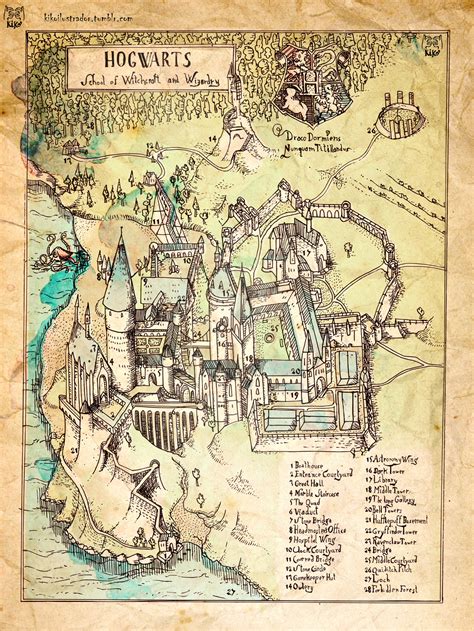 kikoilustrador.tumblr.com
KIKO
KIKO
HOGWARTS
School of Witchcraft and Wizardry
Draco Dormiens
Nunquam Titillandus
14
26
21
20
19
27
1 Boathouse
2 Entrance Courtyard
3 Great Hall
4 Marble Staircase
5 The Quad
6 Viaduct
7 Stone Bridge
8 Headmasters Office
9 Hospital Wing
10 Clock Courtyard
11 Covered Bridge
12 Stone Circle
13 Gamekeeper Hut
14 Owlery
15 Astronomy Wing
16 Dark Tower
17 Library
18 Middle Tower
19 The long Gallery
20 Bell Tower
21 Hufflepuff Basement
22 Gryffindor Tower
23 Ravenclaw Tower
24 Bridge
25 Middle Courtyard
26 Quidditch Pitch
27 Loch
28 Forbidden Forest